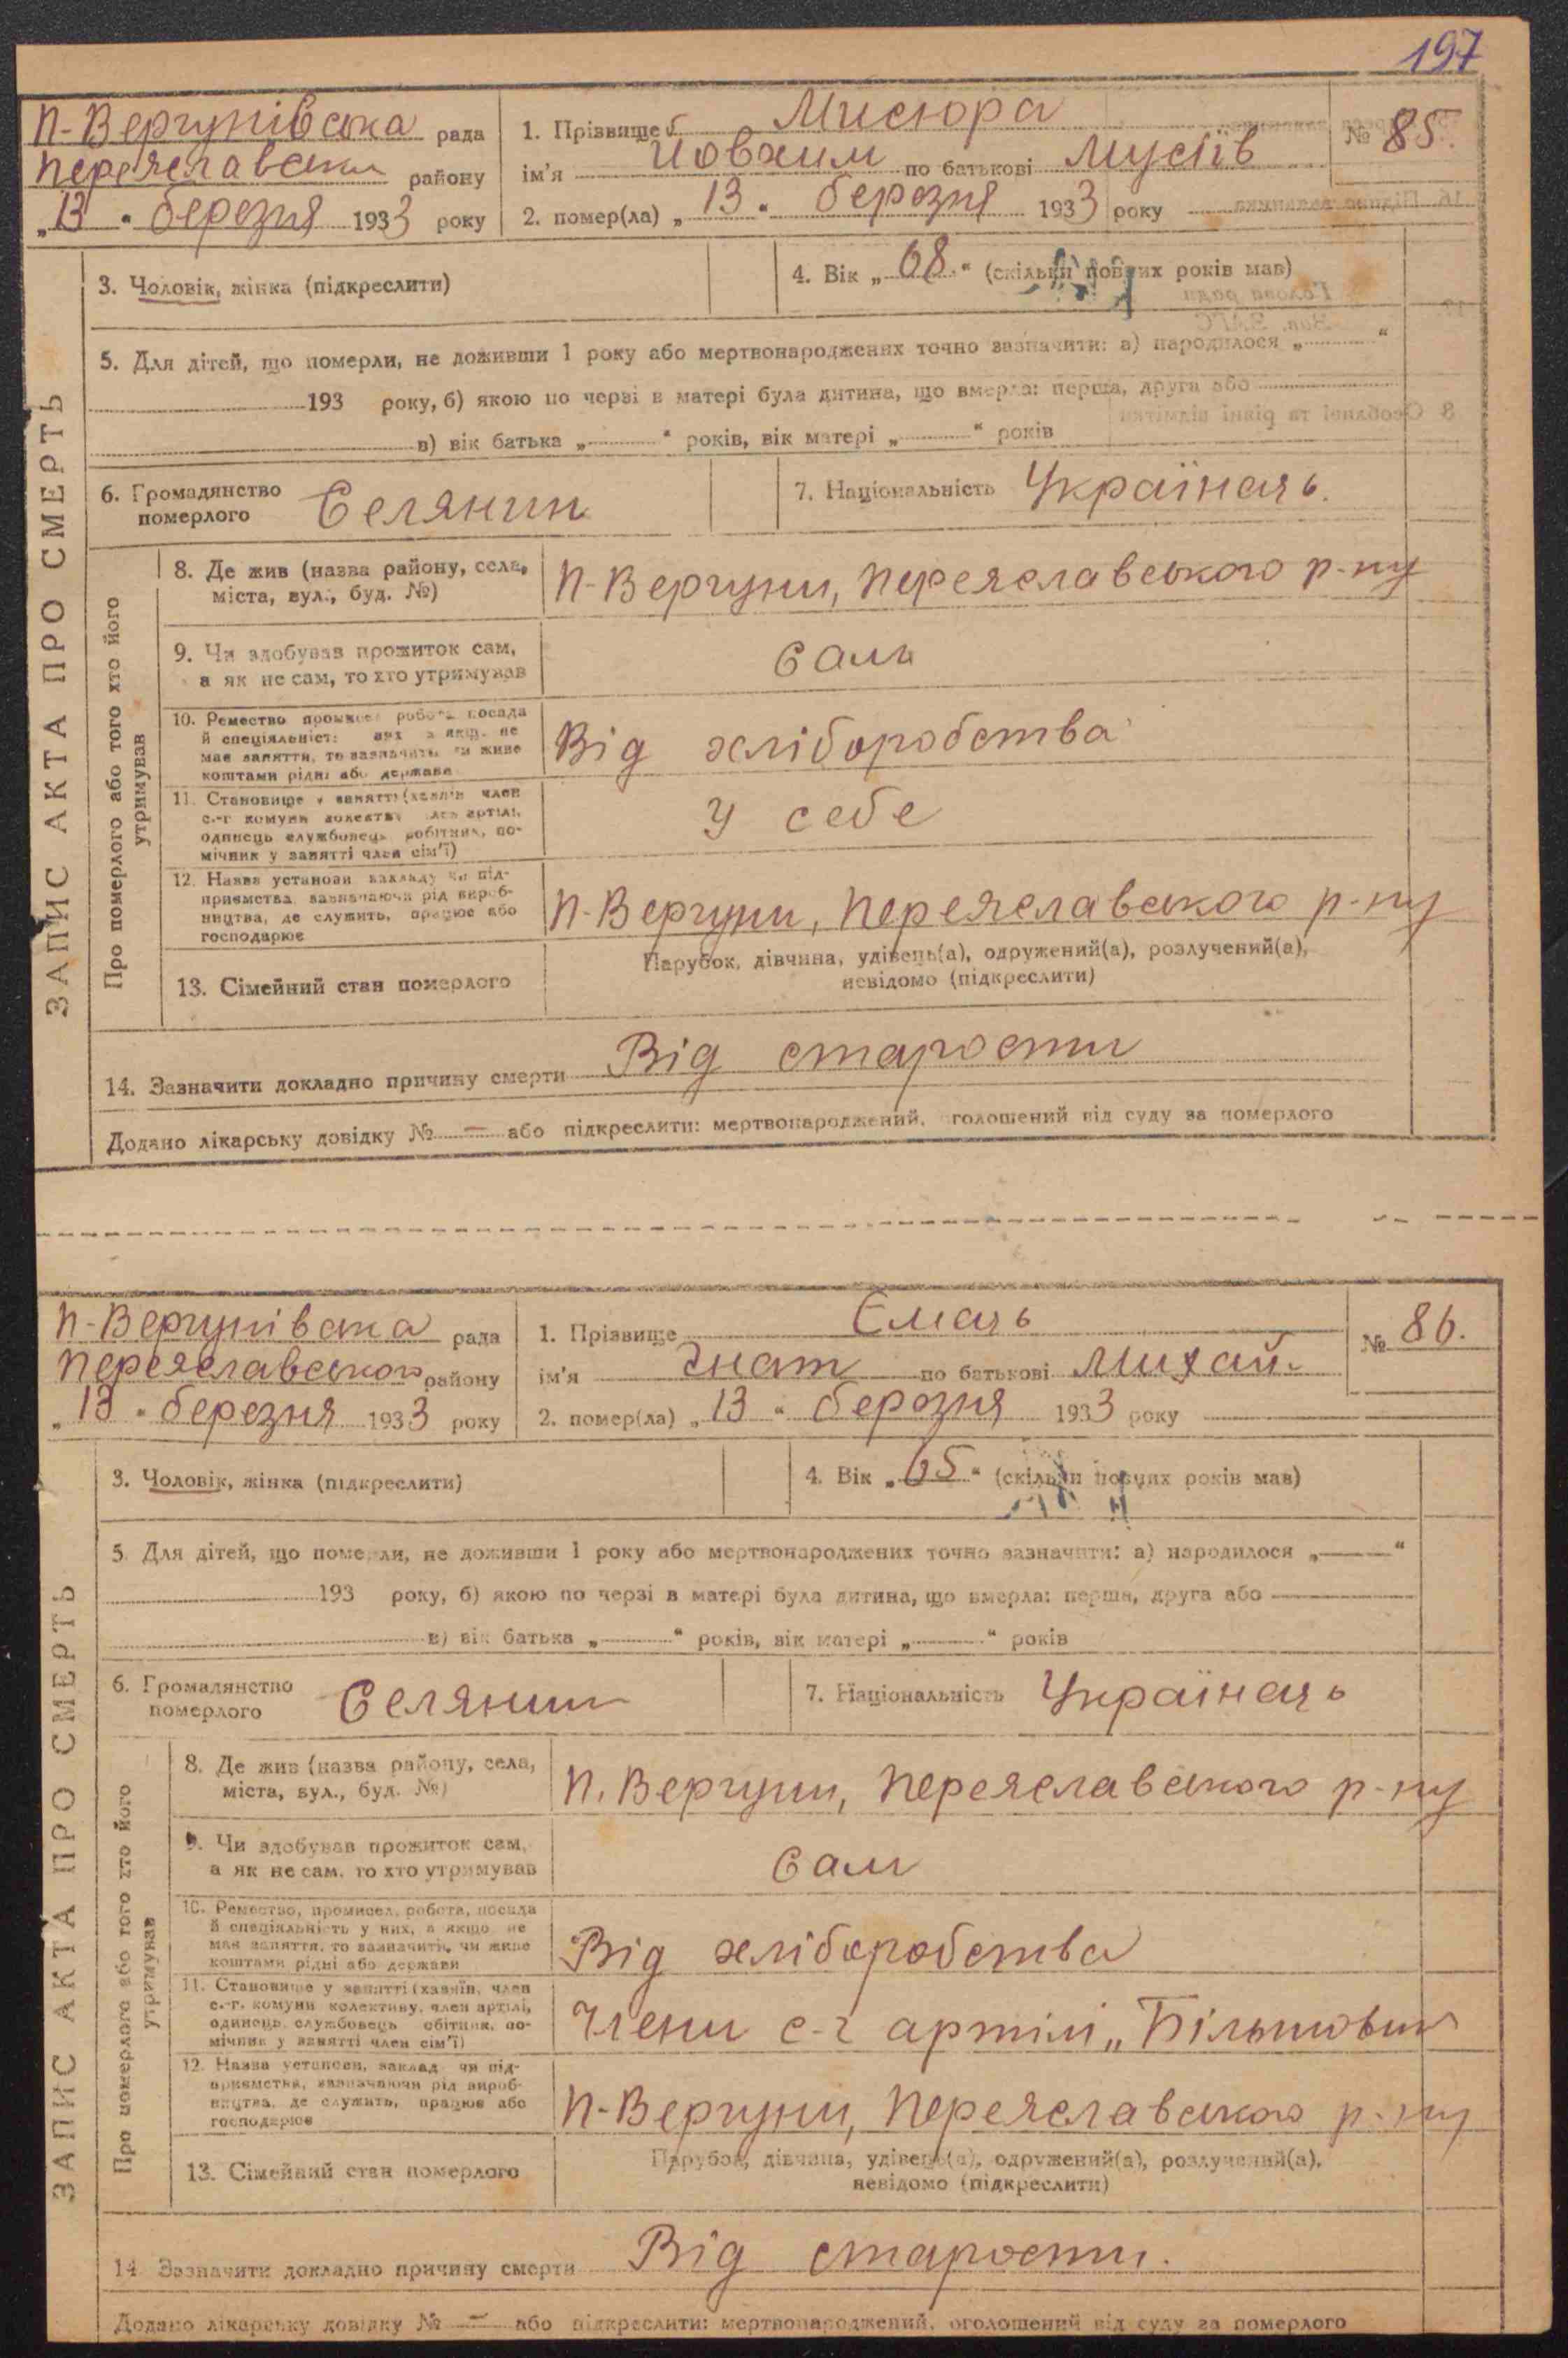 197
П-Вергунівська рада
Переяславськ району
„13" березня 1933 року
1. Прізвище Мисюра
ім'я Йовхим по батькові Мусіїв
2. помер(ла) „13" березня 1933 року
№ 85.
3. Чоловік, жінка (підкреслити)
4. Вік „68" (скільки повних років мав)
5. Для дітей, що померли, не доживши 1 року або мертвонароджених точно зазначити: а) народилося „ "
193 року, б) якою по черзі в матері була дитина, що вмерла: перша, друга або
в) вік батька „ " років, вік матері „ " років
6. Громадянство
померлого Селянин
7. Національність Українець.
ЗАПИС АКТА ПРО СМЕРТЬ
Про померлого або того хто його
утримував
8. Де жив (назва району, села,
міста, вул., буд. №)
П-Вергуни, Переяславського р-ну
9. Чи здобував прожиток сам,
а як не сам, то хто утримував
Сам
10. Ремество промисел робота посада
й спеціяльніст: них а якщо не
має заняття, то зазначить чи живе
коштами рідні або держави
Від хліборобства
11. Становище у занятті (хазяїн член
с.-г комуни колектив член артілі,
одинець службовець робітник, по-
мічник у занятті член сім'ї)
У себе
12. Назва установи закладу чи під-
приємства зазначаючи рід вироб-
ництва, де служить, працює або
господарює
П-Вергуни, Переяславського р-ну
13. Сімейний стан померлого
Парубок, дівчина, удівець(а), одружений(а), розлучений(а),
невідомо (підкреслити)
14. Зазначити докладно причину смерти Від старости
Додано лікарську довідку № — або підкреслити: мертвонароджений, оголошений від суду за померлого
П-Вергунівська рада
Переяславського району
„13" березня 1933 року
1. Прізвище Ємець
ім'я Гнат по батькові Михай.
2. помер(ла) „13" березня 1933 року
№ 86.
3. Чоловік, жінка (підкреслити)
4. Вік „65" (скільки повних років мав)
5. Для дітей, що померли, не доживши 1 року або мертвонароджених точно зазначити: а) народилося „—"
193 року, б) якою по черзі в матері була дитина, що вмерла: перша, друга або
в) вік батька „—" років, вік матері „—" років
6. Громадянство
померлого Селянин
7. Національність Українець
ЗАПИС АКТА ПРО СМЕРТЬ
Про померлого або того хто його
утримував
8. Де жив (назва району, села,
міста, вул., буд. №)
П. Вергуни, Переяславського р-ну
9. Чи здобував прожиток сам,
а як не сам, то хто утримував
Сам
10. Ремество, промисел, робота, посада
й спеціяльність у них, а якщо не
має заняття, то зазначити, чи живе
коштами рідні або держави
Від хліборобства
11. Становище у занятті (хазяїн, член
с.-г. комуни колективу, член артілі,
одинець службовець робітник, по-
мічник у занятті член сім'ї)
Члени с-г артілі „Більшовик
12. Назва установи, заклад чи під-
приємства, зазначаючи рід вироб-
ництва, де служить, працює або
господарює
П-Вергуни, Переяславського р-ну
13. Сімейний стан померлого
Парубок, дівчина, удівець(а), одружений(а), розлучений(а),
невідомо (підкреслити)
14 Зазначити докладно причину смерти Від старости.
Додано лікарську довідку № — або підкреслити: мертвонароджений, оголошений від суду за померлого